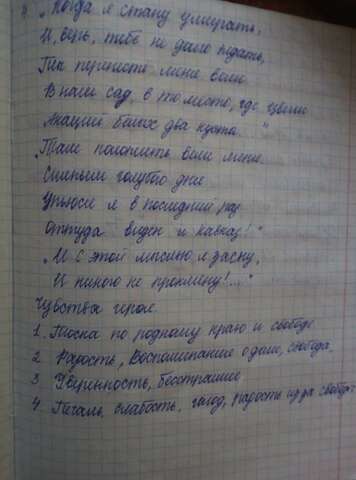 „Когда я стану умирать,
И, верь, тебе не долго ждать,
Ты перенесть меня вели
В наш сад, в то место, где цвели
Акаций белых два куста. "
„Там положить вели меня.
Сияньем голубого дня
Упьюся я в последний раз.
Оттуда виден и Кавказ!"
„И с этой мыслью я засну,
И никого не прокляну!..."
Чувства героя.
1. Тоска по родному краю и свободе
2. Радость, воспоминание о доме, свобода.
3. Уверенность, бесстрашие
4. Печаль, слабость, голод, радость из за свободы